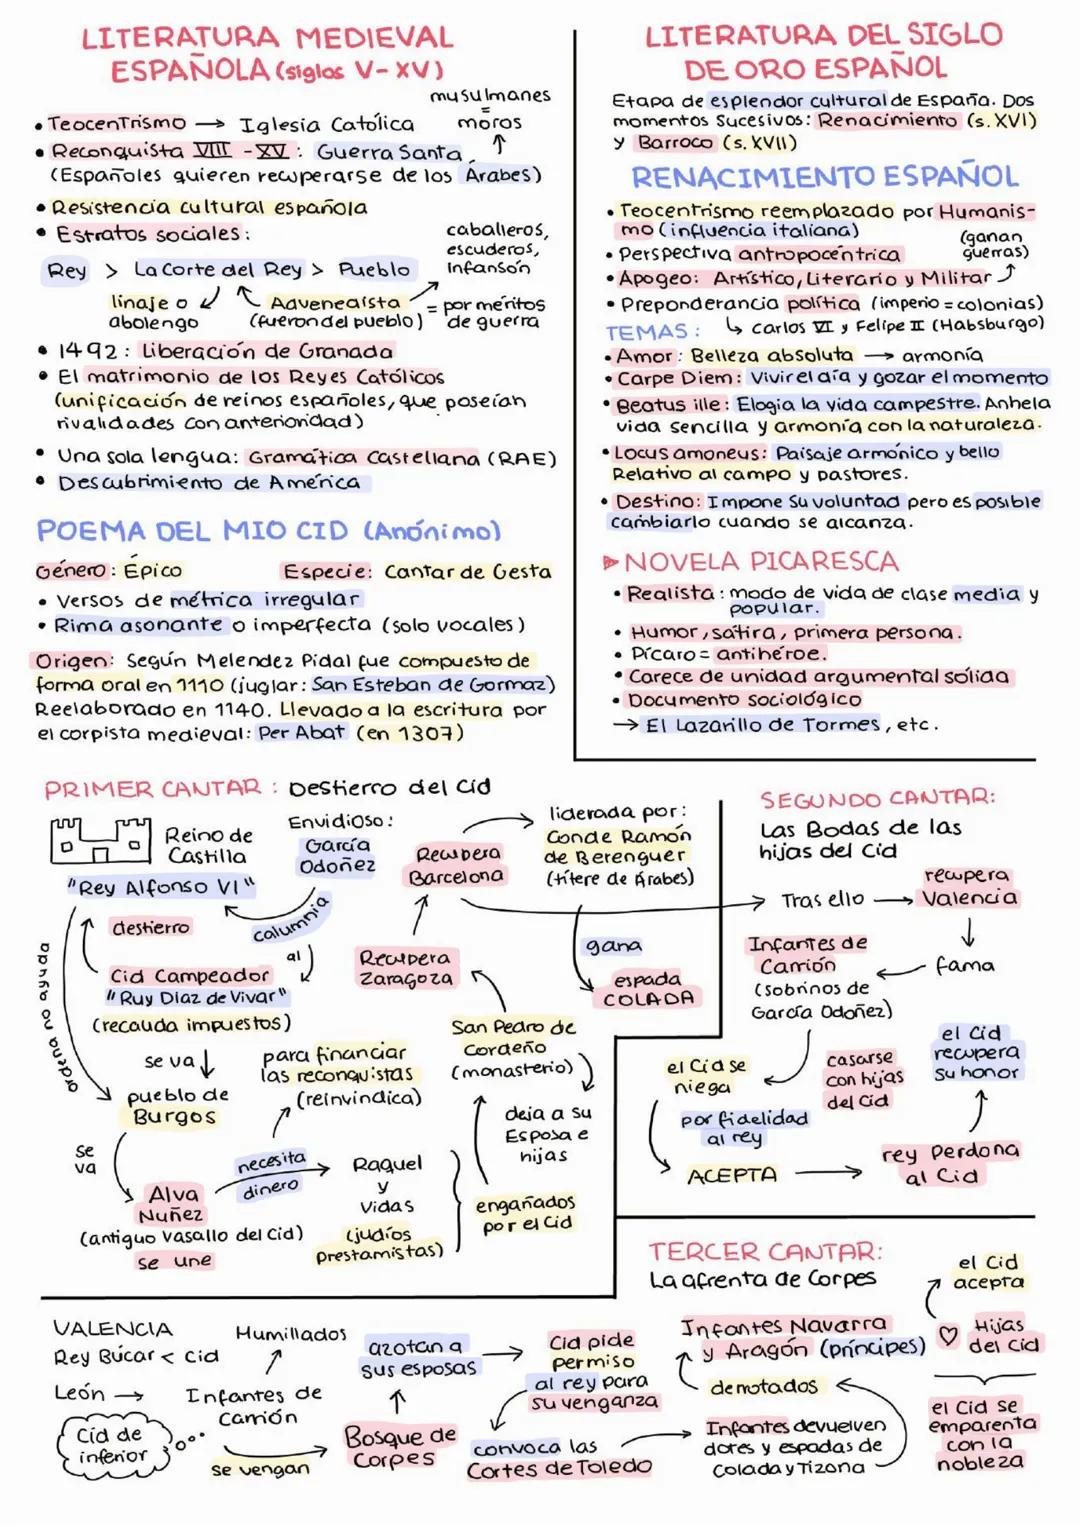 LITERATURA MEDIEVAL
ESPAÑOLA (siglos V-XV)
musulmanes
=
moros
• Teocentrismo → Iglesia Católica
• Reconquista VIII - XV : Guerra Santa
(Españoles quieren recuperarse de los Árabes)
• Resistencia cultural española
• Estratos sociales :
caballeros,
escuderos,
infansón
Rey > La Corte del Rey > Pueblo
linaje o
abolengo
Advenedista
(fueron del pueblo)
= por méritos
de guerra
• 1492 : Liberación de Granada
• El matrimonio de los Reyes Católicos
(unificación de reinos españoles, que poseían
rivalidades con anterioridad)
• Una sola lengua: Gramática Castellana (RAE)
• Descubrimiento de América
POEMA DEL MIO CID (Anónimo)
Género : Épico
Especie: Cantar de Gesta
• Versos de métrica irregular
• Rima asonante o imperfecta (solo vocales)
Origen: Según Melendez Pidal fue compuesto de
forma oral en 1110 (juglar: San Esteban de Gormaz)
Reelaborado en 1140. Llevado a la escritura por
el corpista medieval: Per Abat (en 1307)
LITERATURA DEL SIGLO
DE ORO ESPAÑOL
Etapa de esplendor cultural de España. Dos
momentos Sucesivos: Renacimiento (s. XVI)
y Barroco (s. XVII)
RENACIMIENTO ESPAÑOL
• Teocentrismo reemplazado por Humanis-
mo (influencia italiana)
• Perspectiva antropocéntrica
(ganan
guerras)
• Apogeo: Artístico, Literario y Militar
• Preponderancia política (imperio = colonias)
↳ Carlos VI y Felipe II (Habsburgo)
TEMAS :
• Amor : Belleza absoluta → armonía
• Carpe Diem : Vivir el día y gozar el momento
• Beatus ille : Elogia la vida campestre. Anhela
vida sencilla y armonía con la naturaleza.
• Locus amoneus: Paisaje armónico y bello
Relativo al campo y pastores.
• Destino: Impone su voluntad pero es posible
cambiarlo cuando se alcanza.
▷ NOVELA PICARESCA
• Realista : modo de vida de clase media y
popular.
• Humor, sátira, primera persona.
• Pícaro = antihéroe.
• Carece de unidad argumental sólida
• Documento sociológico
→ El Lazarillo de Tormes, etc.
PRIMER CANTAR : Destierro del Cid
Reino de
Castilla
"Rey Alfonso VI"
Envidioso:
García
Odoñez
columnia
al
destierro
Cid Campeador
"Ruy Díaz de Vivar"
(recauda impuestos)
ordena no ayuda
se va
pueblo de
Burgos
se
va
Alva
Nuñez
(antiguo vasallo del Cid)
se une
necesita
dinero
para financiar
las reconquistas
(reinvindica)
Raquel
y
Vidas
(judíos
prestamistas)
engañados
por el Cid
San Pedro de
Cordeño
(monasterio)
deja a su
Esposa e
hijas
Recupera
Zaragoza
Recupera
Barcelona
liderada por:
Conde Ramón
de Berenguer
(títere de Árabes)
gana
espada
COLADA
SEGUNDO CANTAR:
Las Bodas de las
hijas del Cid
Tras ello
recupera
Valencia
fama
Infantes de
Carrión
(sobrinos de
García Odoñez)
casarse
con hijas
del Cid
el Cid se
niega
por fidelidad
al rey
ACEPTA
rey perdona
al Cid
el Cid
recupera
su honor
TERCER CANTAR:
La afrenta de Corpes
VALENCIA
Rey Búcar < Cid
León →
Cid de
inferior
Infantes de
Carrión
Humillados
se vengan
Bosque de
Corpes
azotan a
sus esposas
Cid pide
permiso
al rey para
su venganza
convoca las
Cortes de Toledo
Infantes devuelven
dotes y espadas de
Colada y Tizona
derrotados
Infantes Navarra
y Aragón (príncipes)
♡ Hijas
del Cid
el Cid
acepta
el Cid se
emparenta
con la
nobleza